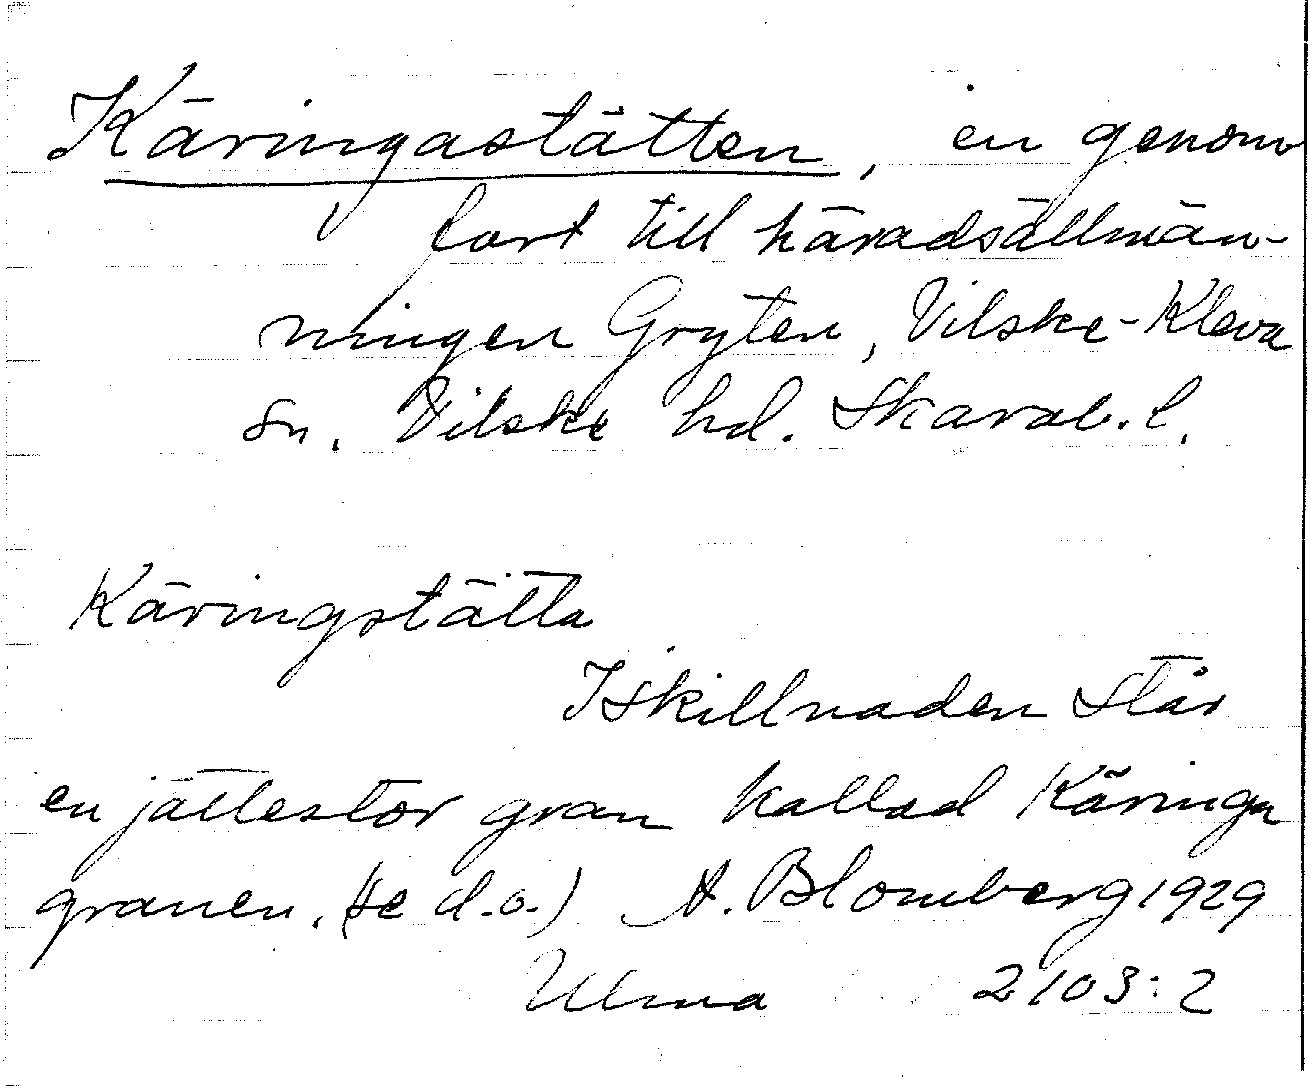 Käringastätten, en genom
fart till häradsallmän-
ningen Gryten, Vilske-Kleva
sn. Vilske hd. Skarab. l.
Käringstätta
I skillnaden står
en jättestor gran kallad Käringa
granen. (se d.o.) A. Blomberg 1929
Ulma 2103:2